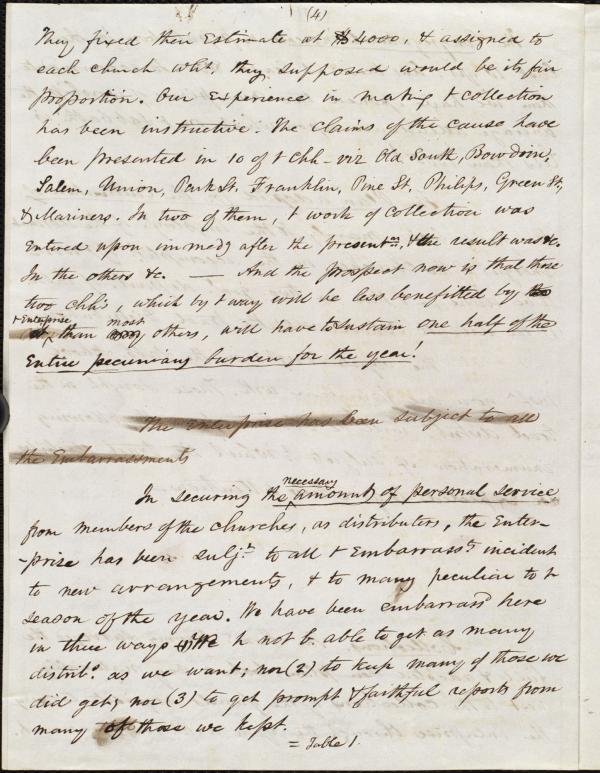 (4)
They fixed their Estimate at $4000, & assigned to
each church wht. they supposed would be its fair
proportion. Our experience in making t collection
has been instructive. The claims of the cause have
been presented in 10 of t chh - viz Old South, Bowdoin,
Salem, Union, Park St. Franklin, Pine St. Philips, Green St,
& Mariners. In two of them, t work of collection was
entered upon immedy after the presentn, & the result was &c.
In the others &c. — And the prospect now is that these
two chhs, which by t way will be less benefitted by
t Enterprise
than most others, will have to sustain one half of the
Entire pecuniary burden for the year!
The Enterprise has been subject to all
the Embarrassments
In securing the necessary amount of personal service
from members of the churches, as distributers, the Enter-
-prise has been subjt to all t Embarrassts incident
to new arrangements, & to many peculiar to t
season of the year. We have been embarrassd here
in three ways We h not b. able to get as many
distribs. as we want; nor (2) to keep many of those we
did get; nor (3) to get prompt & faithful reports from
many of those we kept.
= Table 1.